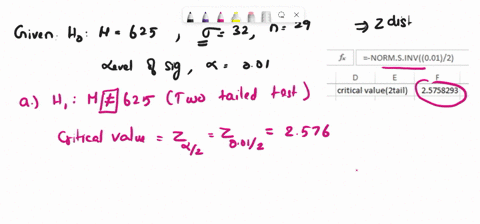 Given: H₀: M = 625, σ = 32, n = 29 ⇒ Z dist
α level of sig, α = 0.01
fx =-NORM.S.INV((0.01)/2)
D E F
critical value(2tail) 2.5758293
a.) H₁: M ≠ 625 (Two tailed test)
Critical value = Z α/2 = Z 0.01/2 = 2.576